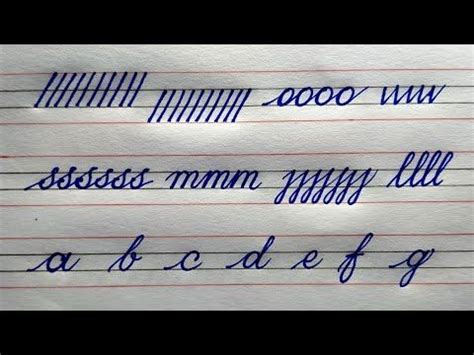 ////////// ////////// oooo uuu
ssssss mmm jjjjjj llll
a b c d e f g